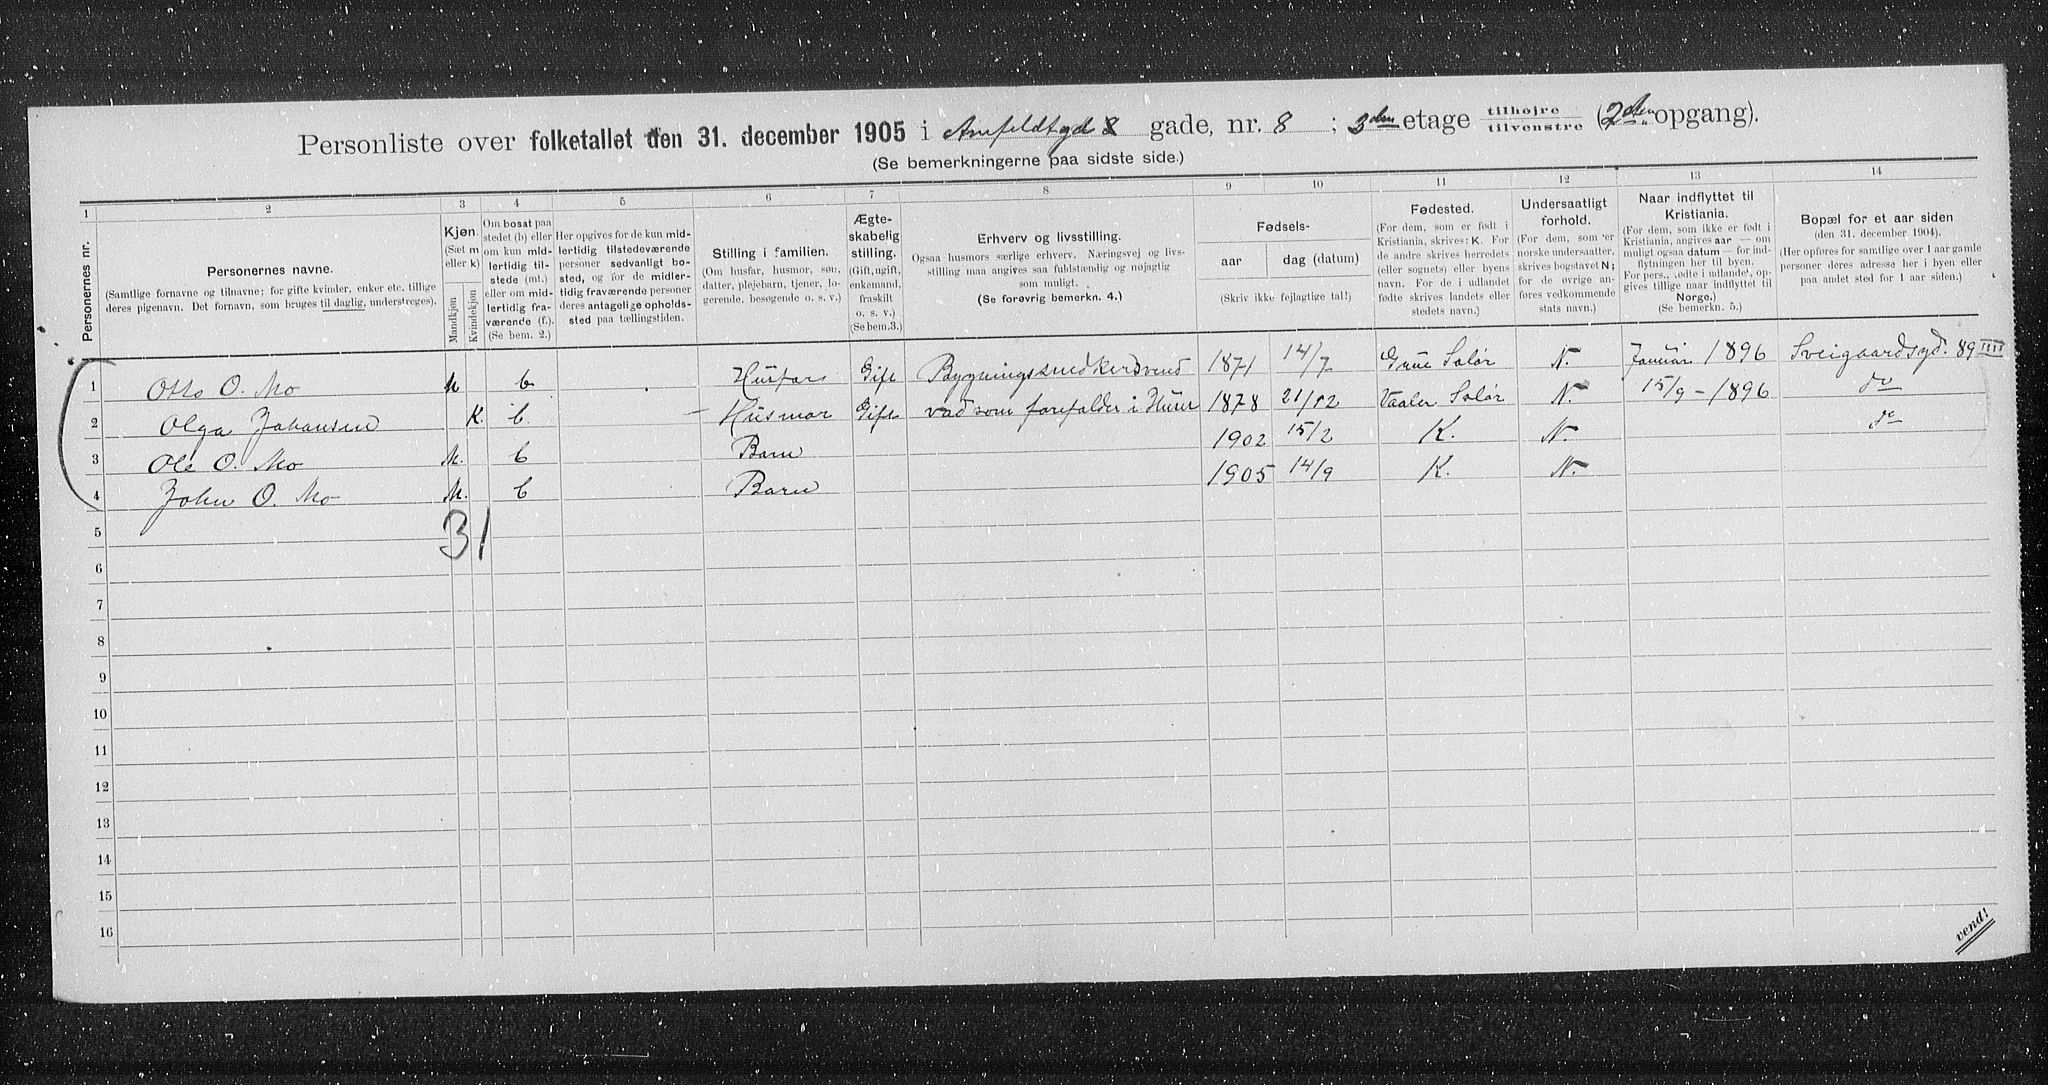 Personliste over folketallet den 31. december 1905 i Arnfeldtgd 8 gade, nr. 8 ; 3den etage tilhøjre tilvenstre (2den opgang).
(Se bemerkningerne paa sidste side.)
1 2 3 4 5 6 7 8 9 10 11 12 13 14
Personernes nr.
Personernes navne.
(Samtlige fornavne og tilnavne; for gifte kvinder, enker etc. tillige
deres pigenavn. Det fornavn, som bruges til daglig, understreges).
Kjøn.
(Sæt m
eller k)
Mandkjøn
Kvindekjøn
Om bosat paa
stedet (b) eller
om kun midlertidig
tilstede (mt.)
eller om midlertidig
fraværende (f.).
(Se bem. 2.)
Her opgives for de kun midlertidig
tilstedeværende
personer sedvanlig bosted,
og for de midlertidig
fraværende personer
deres antagelige opholdssted
paa tællingstiden.
Stilling i familien.
(Om husfar, husmor, søn,
datter, plejebarn, tjener, logerende,
besøgende o. s. v.)
Ægteskabelig
stilling.
(Gift, ugift,
enkemand,
fraskilt
o. s. v.)
(Se bem.3.)
Erhverv og livsstilling.
Ogsaa husmors særlige erhverv. Næringsvej og livsstilling
maa angives saa fuldstændig og nøjagtig
som muligt.
(Se forøvrig bemerkn. 4.)
Fødsels-
aar dag (datum)
(Skriv ikke fejlagtige tal!)
Fødested.
(For dem, som er født i
Kristiania, skrives: K. For
de andre skrives herredets
(eller sognets) eller byens
navn. For de i udlandet
fødte skrives landets eller
stedets navn.)
Undersaatligt
forhold.
(For dem, som er
norske undersaatter,
skrives bogstavet N;
for de øvrige anføres
vedkommende
stats navn.)
Naar indflyttet til
Kristiania.
(For dem, som ikke er født i
Kristiania, angives aar — om
muligt ogsaa datum — for indflytningen
her til byen.
For pers., fødte i udlandet, opgives
tillige naar indflyttet til
Norge.)
(Se bemerkn. 5.)
Bopæl for et aar siden
(den 31. december 1904).
(Her opføres for samtlige over 1 aar gamle
personer deres adresse her i byen eller
paa andet sted for 1 aar siden.)
1 Otto O. Mo M b Husfar Gift Bygningssnedkersvend 1871 14/7 Grue Solør N. Januar 1896 Sveigaardsgd. 89 IIII
2 Olga Johansen K. b. Husmor Gift vad som forefalder i Huset 1878 21/12 Vaaler Solør N. 15/9 - 1896 do
3 Ole O. Mo M. b Barn 1902 15/2 K. N. do
4 John O. Mo M. b Barn 1905 14/9 K. N.
3 1
5
6
7
8
9
10
11
12
13
14
15
16
vend!